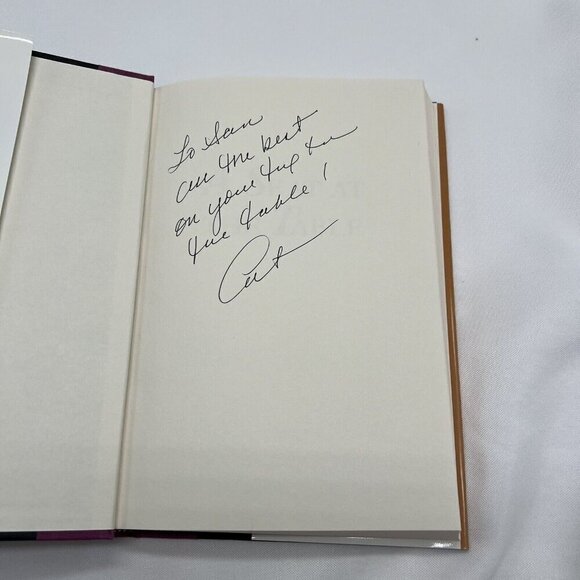 To Sam
all the best
on your trip to
the table!